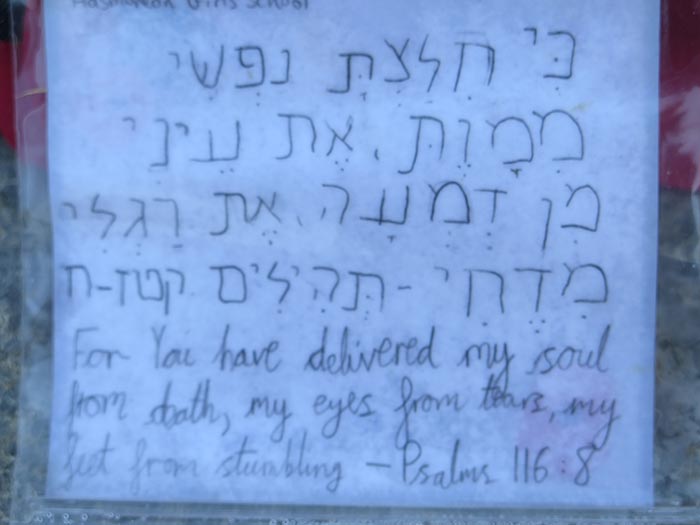 Hasmonean Girls School
כִּי חִלַּצְתָּ נַפְשִׁי
מִמָּוֶת, אֶת עֵינִי
מִן דִּמְעָה, אֶת רַגְלִי
מִדֶּחִי - תְּהִילִים קטז-ח
For You have delivered my soul
from death, my eyes from tears, my
feet from stumbling - Psalms 116:8